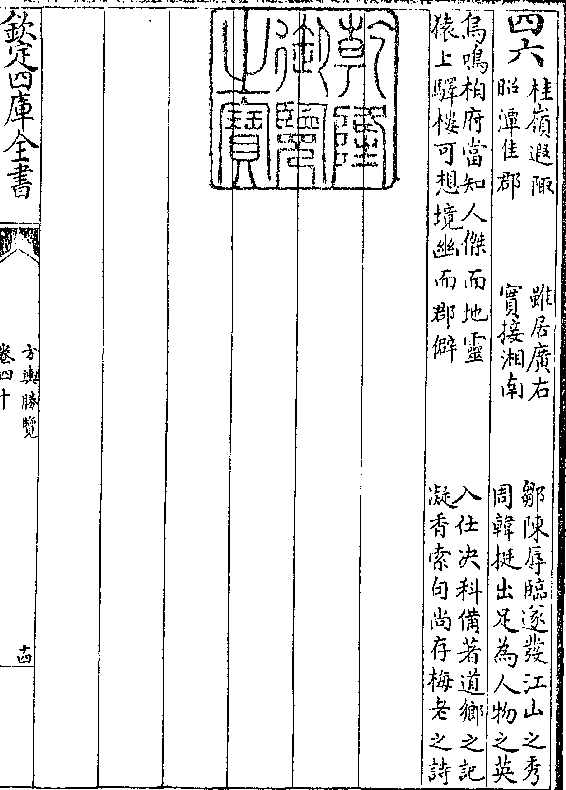 四六
桂嶺遐陬
昭潭佳郡
雖居廣右
實接湘南
鄒陳辱臨遂發江山之秀
周韓挺出足為人物之英
烏鳴柏府當知人傑而地靈
猿上驛樓可想境幽而郡僻
入仕决科備著道鄉之記
凝香索句尚存梅老之詩
乾隆
御覽
之寶
欽定四庫全書
方輿勝覽
卷四十
十四